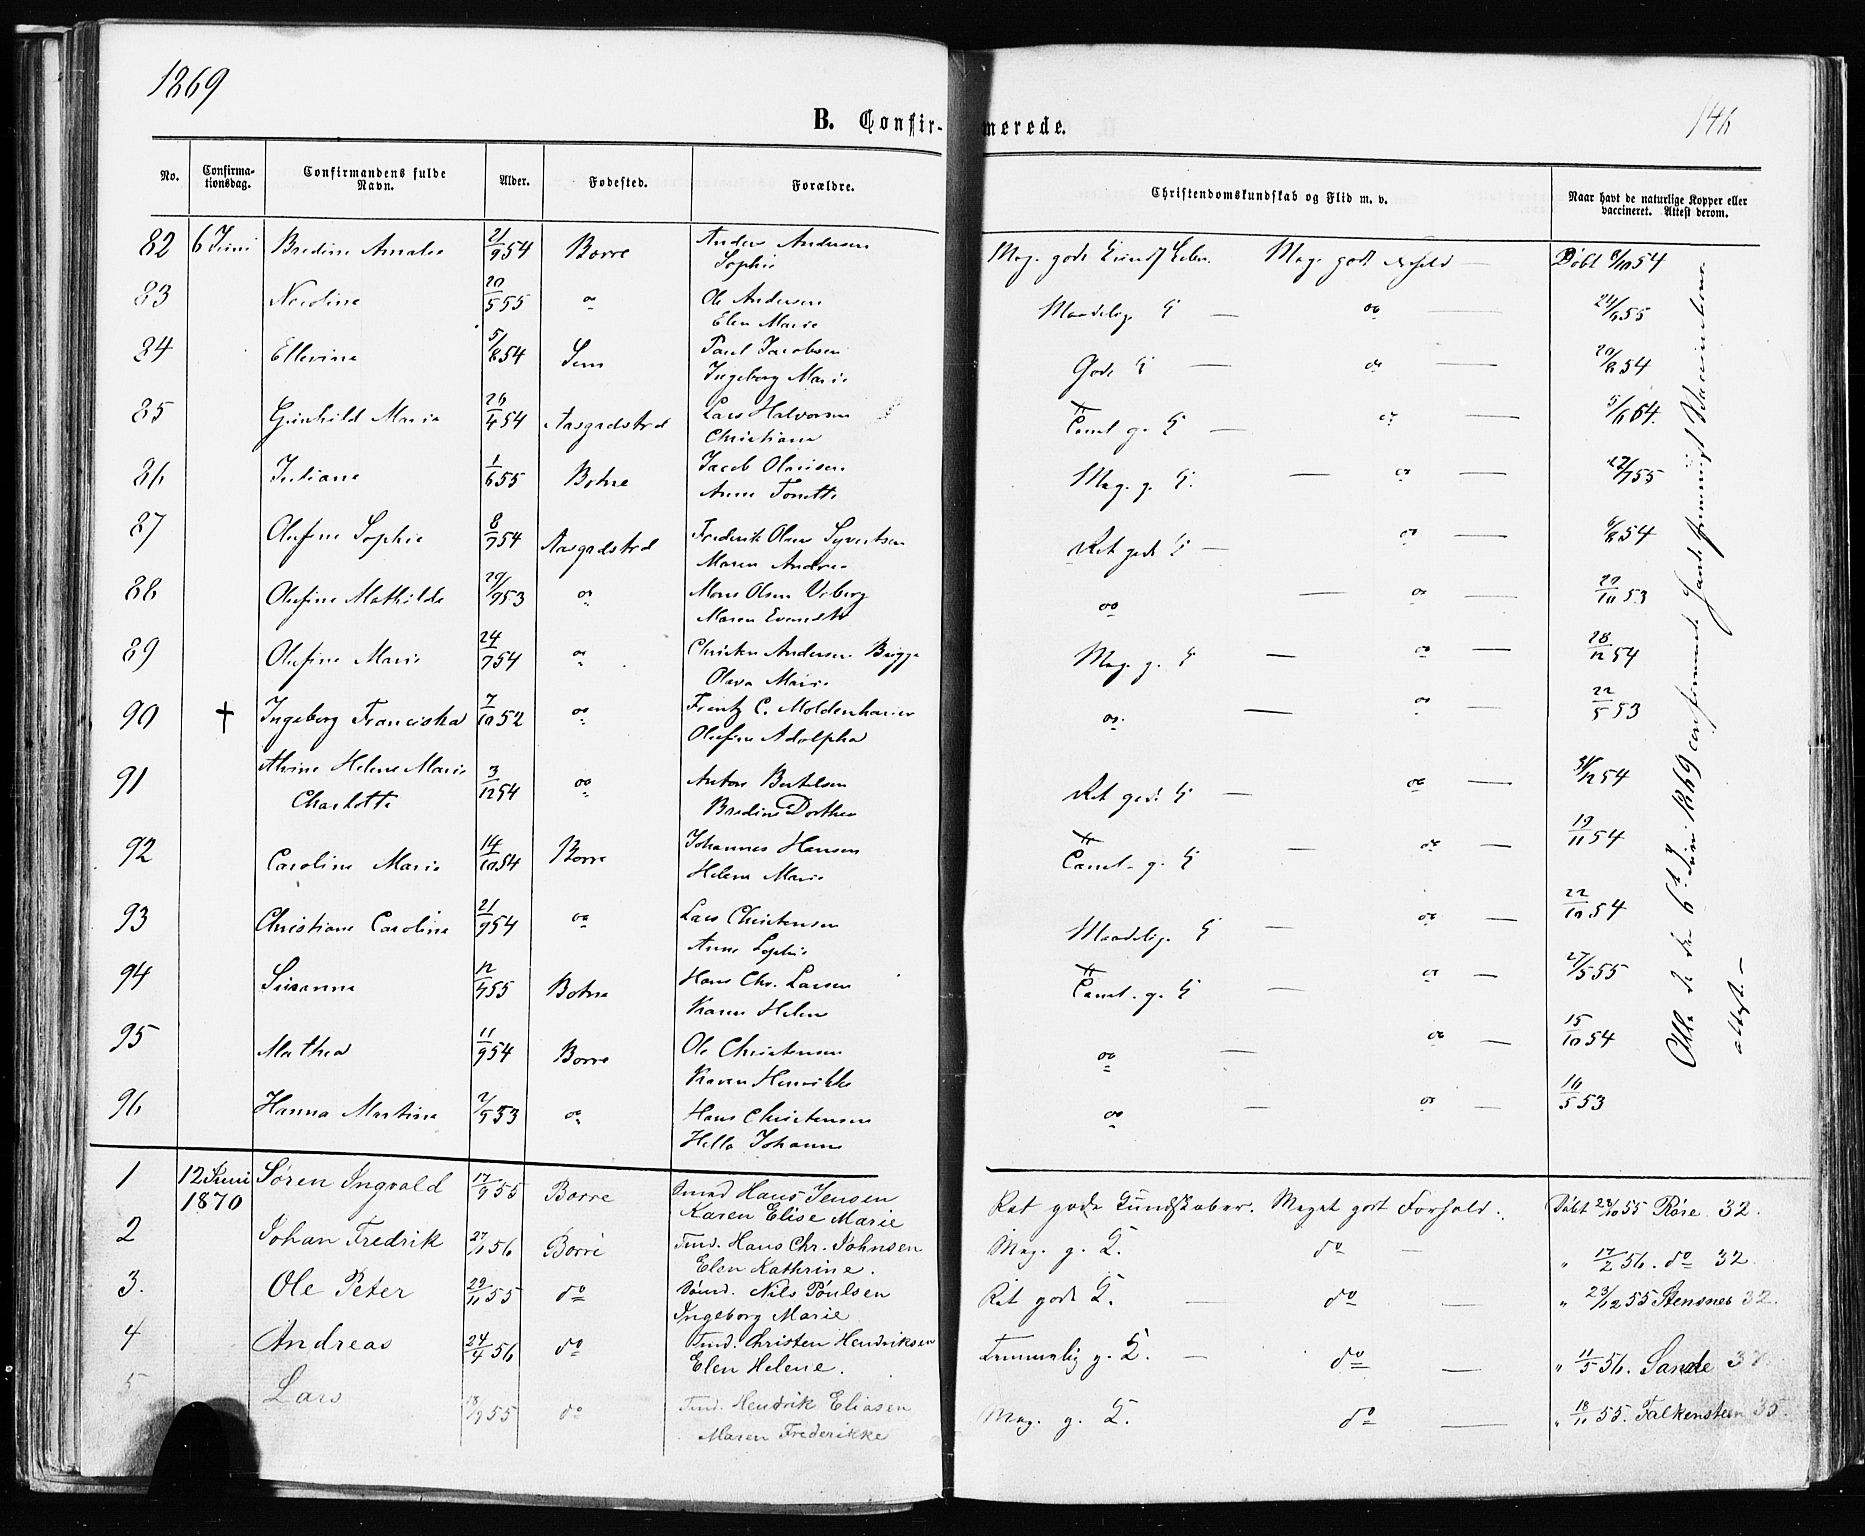 1869
146
B. Confir-merede.
No. Confirma-tionsdag. Confirmandens fulde Navn. Alder. Fødested. Forældre. Christendomskundskab og Flid m. v. Naar havt de naturlige Kopper eller vaccineret. Attest derom.
82 6 Juni Bredine Amalie 21/9 54 Borre Anders Andersen Mag. gode Kundsk Mag. godt Forhold — Døbt 54
Sophie
83 Nicoline 20/5 55 do Ole Andersen Maadelig K — do — 24/6 55
Elen Marie
84 Ellevine 5/8 54 Sem Paul Jacobsen Gode K — do — 20/8 54
Ingeborg Marie
85 Gunhild Marie 26/4 54 Aasgadstrd Lars Halvorsen Taml. g. K — do — 5/6 64.
Christiane
86 Juliane 1/6 55 Botne Jacob Olavisen Mag. g. K. — do — 22/7 55
Anne Tonette
87 Olufine Sophie 8/7 54 Aasgadstrd Frederik Olsen Syvertsen Ret gode K — do — 6/8 54
Maren Andrea
88 Olufine Mathilde 29/9 53 do Mons Olsen Viberg do — do — 20/10 53
Maren
89 Olufine Marie 24/7 54 do Christen Andersen Brygge Mag. g. K — do — 28/12 54
Olava Marie
90 † Ingeborg Franciska 7/10 52 do Frantz C. Moldenhauer do — do — 22/5 53
Olufine Adolpha
91 Alvine Helene Marie 3/12 54 do Anton Bertelsen Ret gode K — do — 31/12 54
Charlotte Bredine Dorthea
92 Caroline Marie 14/10 54 Borre Johannes Hansen Taml. g. K — do — 19/11 54
Helene Marie
93 Christiane Caroline 21/9 54 do Lars Christensen Maadelig K — do — 22/10 54
Anne Sophie
94 Susanne 12/4 55 Botne Hans Chr. Larsen Taml. g. K — do — 27/5 55
Karen Helene
95 Mathea 11/9 54 Borre Ole Christensen do — do — 15/10 54
Karen Henrikke
96 Hanna Martine 2/5 53 do Hans Christensen do — do — 16/5 53
Helle Johanne
Alle de den 6te Juni 1869 confirmerede havde fremvist Vaccinations
attest. —
1 12 Juni Søren Ingvald 17/9 55 Borre Smed Hans Jensen Ret gode Kundskaber. Meget godt Forhold. Døbt 28/10 55 Røre 32.
1870 Karen Elise Marie
2 Johan Fredrik 27/1 56 Borre Hans Chr. Johnsen Mag. g. K. do — " 17/2 56. do 32
Elen Kathrine.
3. Ole Peter 29/11 55 do Nils Poulsen Ret gode K. — do — " 23/12 55 Stensnes 32.
Ingeborg Marie
4 Andreas 24/4 56 do Christen Hendriksen Temmelig g. K. — do — " 11/5 56. Sande
Elen Helene.
5 Lars 18/9 55 do Hendrik Eliasen Mag. g. K. do — " 18/11 55. Falkensteen 35.
Maren Frederikke